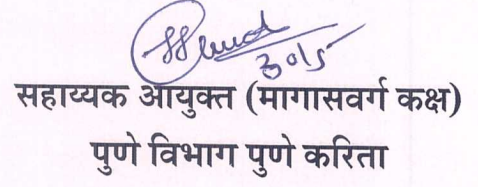 30/5
सहाय्यक आयुक्त (मागासवर्ग कक्ष)
पुणे विभाग पुणे करिता